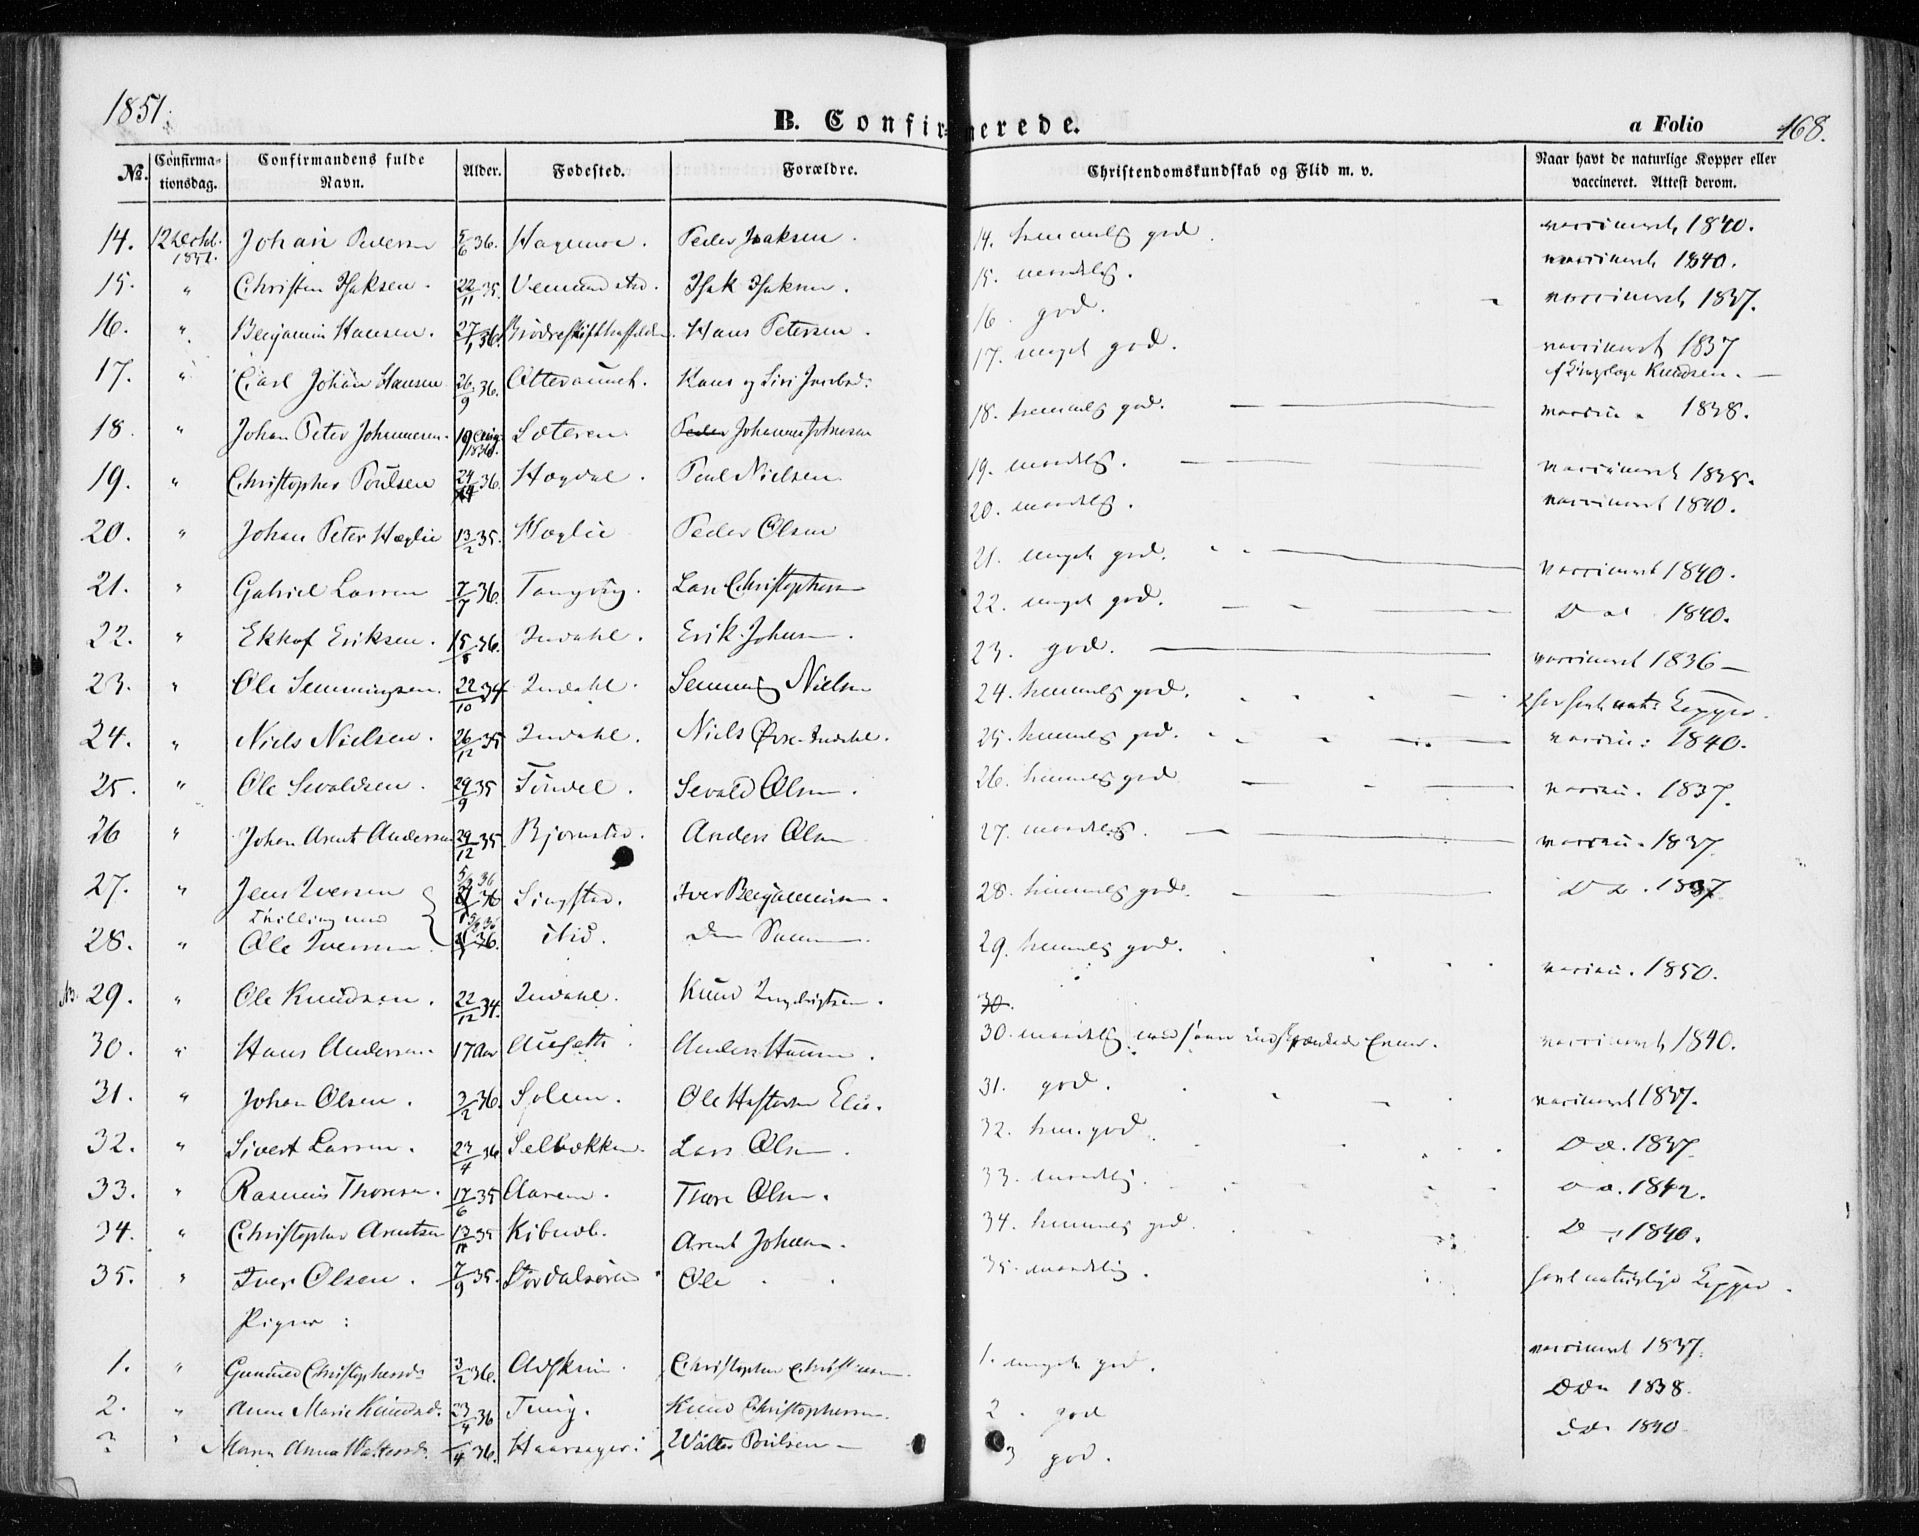 1851.
B. Confirmerede.
a Folio 168.
No. Confirmationsdag. Confirmandens fulde Navn. Alder. Fødested. Forældre. Christendomskundskab og Flid m. v. Naar havt de naturlige Kopper eller vaccineret. Attest derom.
14. 12 Octob. 1851. Johan Pedersen 5/6 36. Hagemoe. Peder Isaksen. 14. temmelig god. vaccineret 1840.
15. " Christen Isaksen. 22/11 35. Vemundstad. Isak Isaksen. 15. maadelig. vaccineret 1840.
16. " Benjamin Hansen. 27/1 36. Hans Petersen. 16. god. vaccineret 1837.
17. " Carl Johan Hansen 26/9 36. Hans og Siri 17. meget god. vaccineret 1837 Knudsen.
18. " Johan Peter Johannesen. 19 Aug. 1836. Sæteren. Johannes Johnsen 18. temmelig god. 1838.
19. " Christopher Poulsen 24 36. Høgdal. Poul Nielsen 19. maadelig. vaccineret 1838.
20. " Johan Peter Høglie 13/2 35. Høglie Peder Olsen 20. maadelig. vaccineret 1840.
21. " Gabriel Larsen 7/7 36. Tangvig. Lars Christophersen 21. meget god. vaccineret 1840.
22. " Ekhof Eriksen. 15/8 36. Indahl. Erik Johnsen. 22. meget god. Do 1840.
23. " Ole Semmingsen. 22/10 34 Indahl. Semming Nielsen 23. god. vaccineret 1836
24. " Niels Nielsen. 26/12 35 Indahl. Niels Øvre Indahl. 24. temmelig god. havt nat: Kopper.
25. " Ole Sevaldsen. 29/9 35 Tondel. Sevald Olsen. 25. temmelig god. vaccin: 1840.
26 " Johan Arnt Andersen 29/12 35. Bjørnstad. Anders Olsen 26. temmelig god vaccin. 1837.
27. " Jens Iversen 36 Singstad. Iver Benjaminsen. 27. maadelig. vaccin. 1837
Tvilling med
28. " Ole Iversen 36. ibid. Den Samme. 28. temmelig god. Do. 1837
NB. 29. " Ole Knudsen. 22/12 34. Indahl. Knud Ingebrigtsen. 29. temmelig god. vaccin. 1850.
30.
30. " Hans Andersen. 17 Aar Anders Hansen. 30. maadelig med indskrænkede Evner. vaccineret 1840.
31. " Johan Olsen. 3/2 36. Solem. Ole Elie. 31. god. vaccineret 1837.
32. " Sivert Larsen. 23/4 36 Selbækken. Lars Olsen. 32. tem. god. Do. 1837.
33. " Rasmus Thoresen. 17/6 35 Aarem. Thore Olsen. 33. maadelig. Do. 1842.
34. " Christopher Arntsen 13/11 35 Arnt Johnsen. 34. temmelig god. D 1840.
35. " Iver Olsen. 7/9 35. Størdalsøren Ole 35. maadelig. havt naturlige Kopper.
Piger:
1. " Gunnild Christophersd. 3/2 36. Christopher Christensen 1. meget god. vaccineret 1837.
2. " Anne Marie Knudsd. 23/4 36 Tung. Knud Christophersen. 2. god Do 1838.
3 " Maren Anna Woltersd. 4 36. Haarsager: Wolter Poulsen 3 god. Do 1840